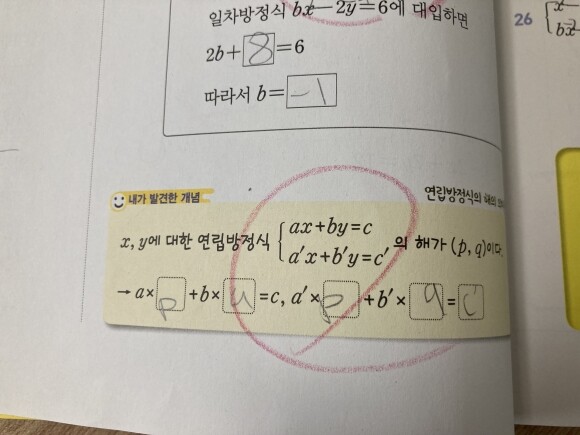 일차방정식 bx-2y=6에 대입하면
2b+8=6
따라서 b=-1
26
내가 발견한 개념
연립방정식의 해의
x, y에 대한 연립방정식 { ax+by=c
a'x+b'y=c' 의 해가 (p, q)이다.
→ a×p+b×q=c, a'×p+b'×q=c'